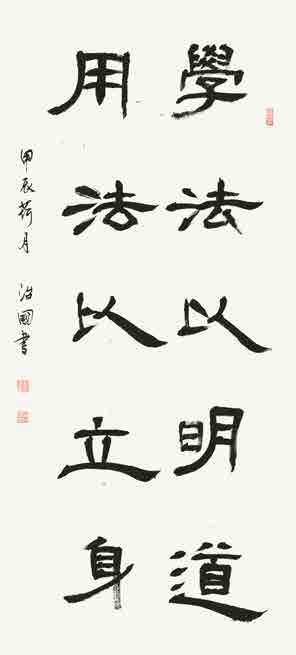 學法以明道
用法以立身
甲辰荷月 治國書